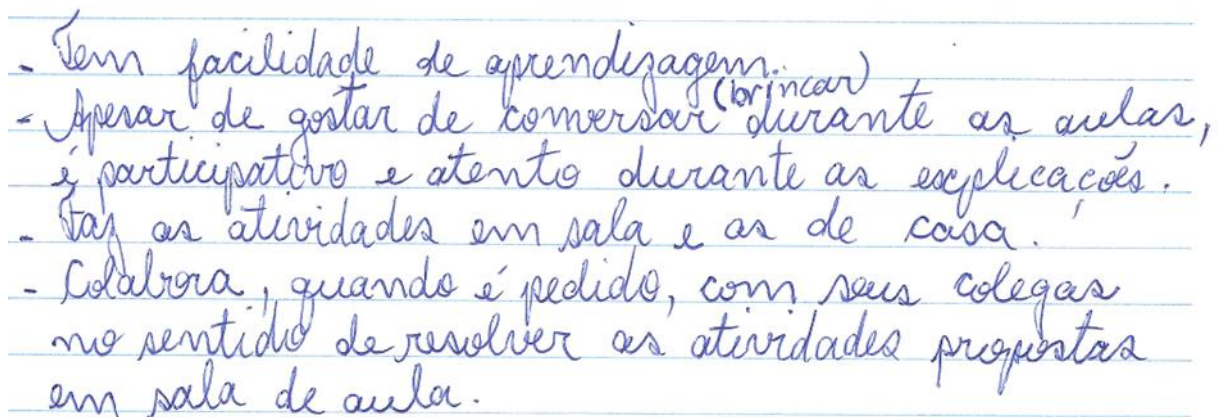 - Tem facilidade de aprendizagem.
- Apesar de gostar de conversar (brincar) durante as aulas,
é participativo e atento durante as explicações.
- Faz as atividades em sala e as de casa.
- Colabora, quando é pedido, com seus colegas
no sentido de resolver as atividades propostas
em sala de aula.